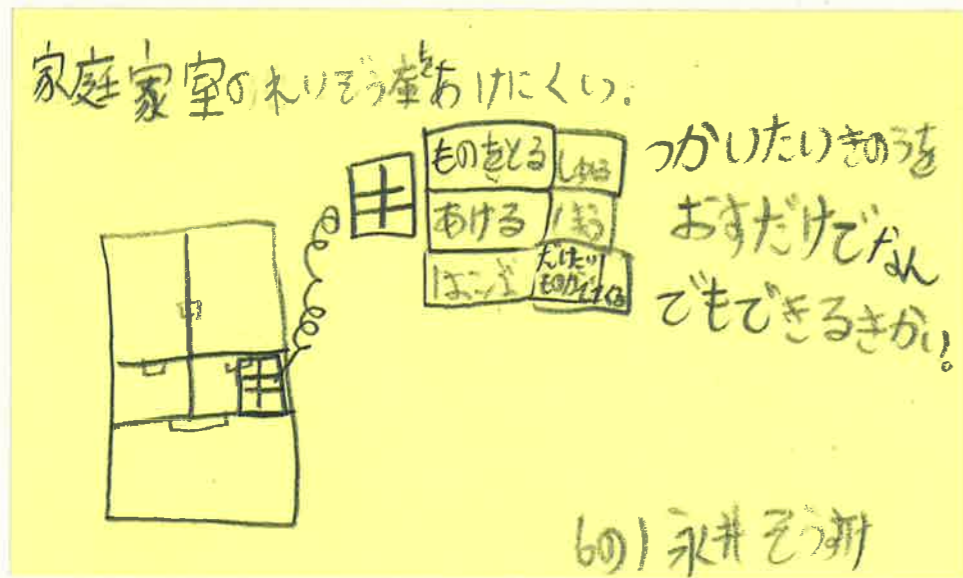 家庭家室のれいぞう庫をあけにくい。
ものをとる
しめる
あける
はこぶ
だけたい
ものがでてくる
つかいたいきのうを
おすだけでなん
でもできるきかい。
6の1 永井そう